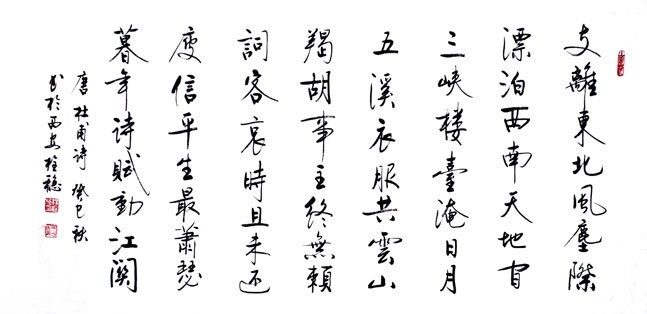 支離東北風塵際
漂泊西南天地間
三峽楼臺淹日月
五溪衣服共雲山
羯胡事主終無賴
詞客哀時且未還
庾信平生最蕭瑟
暮年诗賦動江関
唐杜甫诗 癸巳秋
书於西安